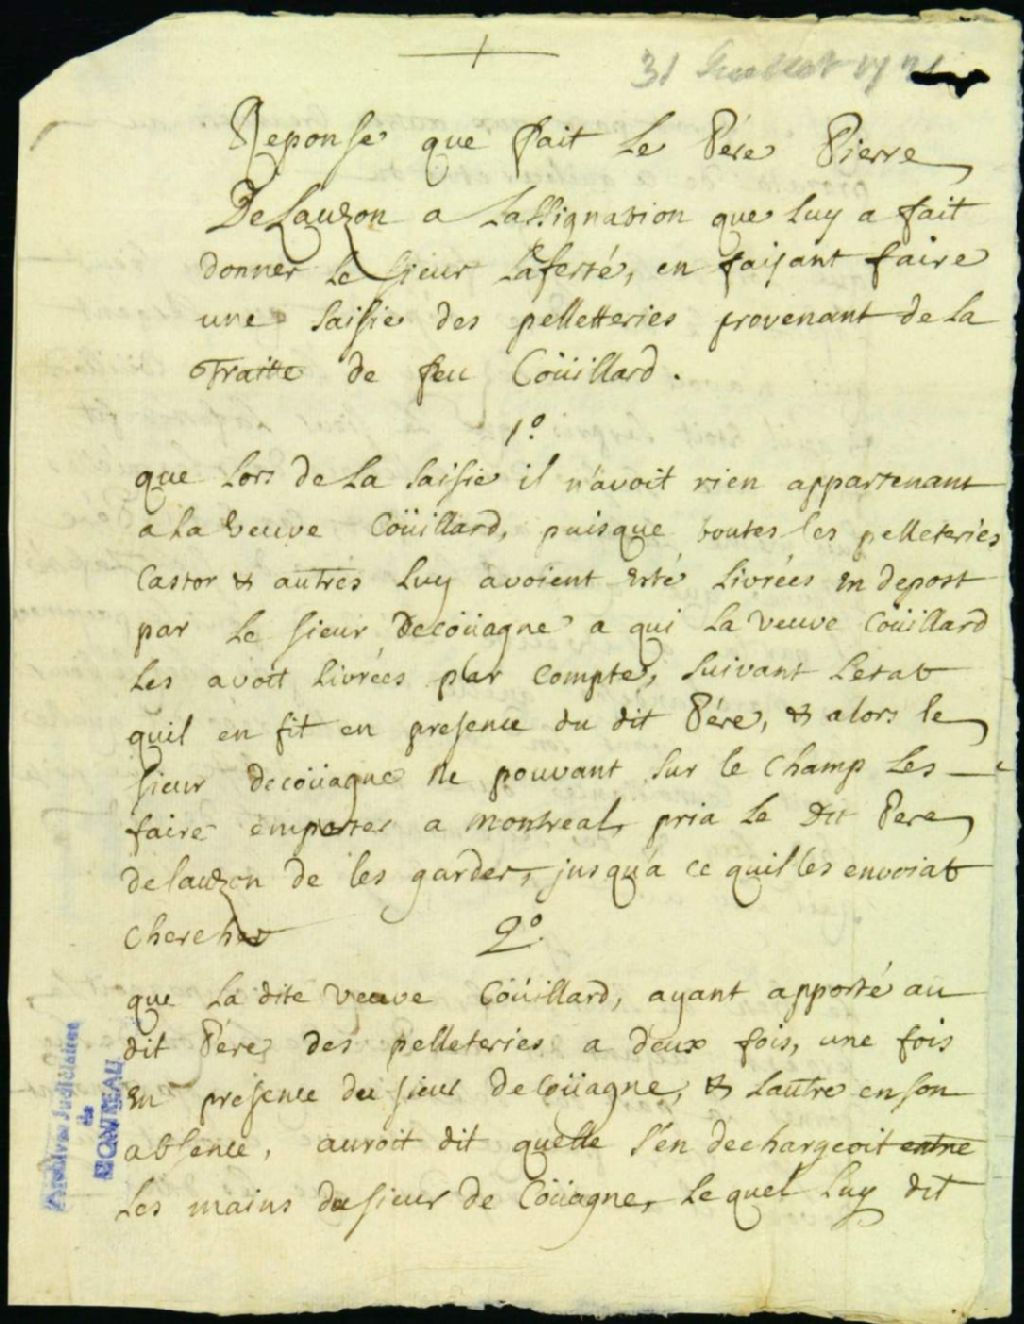 31 Juillet 17
Reponse que fait Le Pére Pierre
DeLauzon a Lassignation que luy a fait
donner Le sieur Laferté, en faisant faire
une saisie des pelletteries provenant de La
Traitte de feu Coüillard.
1º
que Lors de La saisie il n'avoit rien appartenant
a La veuve Coüillard, puisque toutes les pelleteries
Castor & autres luy avoient esté Livrées en depost
par Le sieur Decoüagne a qui La veuve Coüillard
Les avoit Livrées par Compte, suivant L'etat
quil en fit en presence du dit Pére, & alors le
sieur decoüagne ne pouvant sur le champ Les
faire emporter a Montreal, pria Le dit Pere
delauzon de les garder, jusqu'a ce quil les envoiat
chercher
2º
que La dite veuve Coüillard, ayant apporté au
dit Pére des pelleteries a deux fois, une fois
en presence du sieur decoüagne, & Lautre en son
absence, auroit dit quelle s'en dechargeoit entre
Les mains du sieur de Coüagne, Lequel Luy dit
Archives Judiciaires
de
MONTREAL